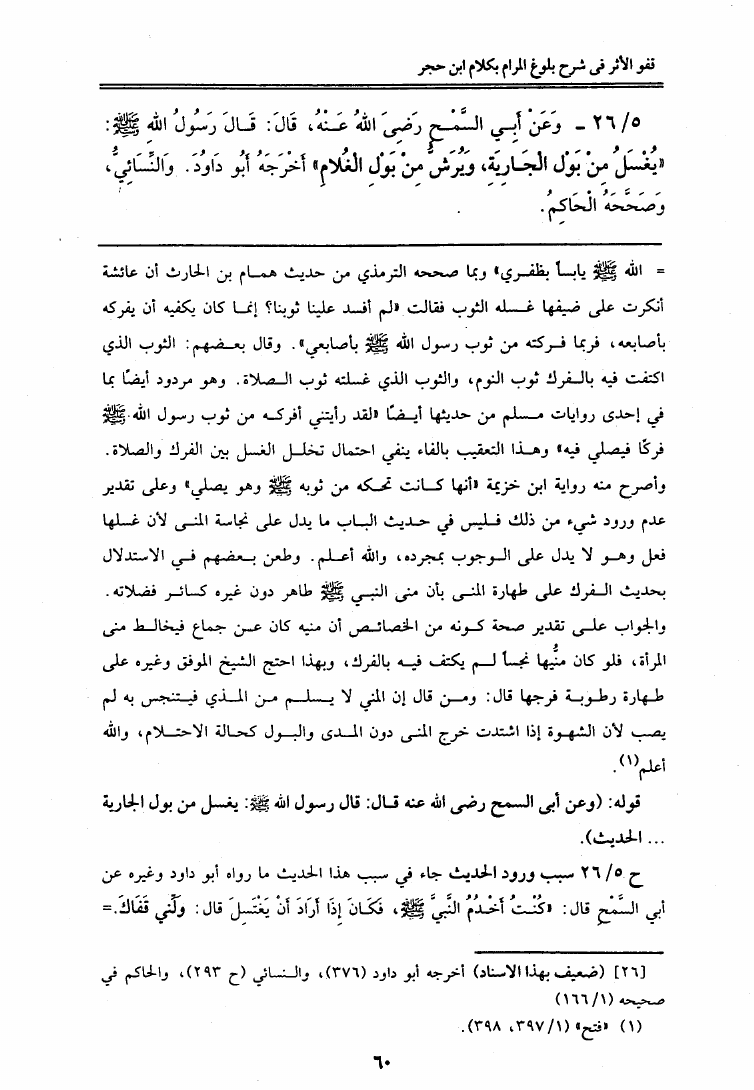 قفو الأثر فى شرح بلوغ المرام بكلام ابن حجر
٢٦/٥ ـ وَعَنْ أَبِي السَّمْحِ رَضِىَ اللهُ عَنْهُ، قَالَ: قَالَ رَسُولُ اللهِ ﷺ:
«يُغْسَلُ مِنْ بَوْلِ الْجَارِيَةِ، وَيُرَشُّ مِنْ بَوْلِ الْغُلَامِ» أَخْرَجَهُ أَبُو دَاودَ. وَالنَّسَائِيُّ،
وَصَحَّحَهُ الْحَاكِمُ.
= الله ﷺ يابساً بظفري» وبما صححه الترمذي من حديث همام بن الحارث أن عائشة
أنكرت على ضيفها غسله الثوب فقالت «لم أفسد علينا ثوبنا؟ إنما كان يكفيه أن يفركه
بأصابعه، فربما فركته من ثوب رسول الله ﷺ بأصابعي». وقال بعضهم: الثوب الذي
اكتفت فيه بالفرك ثوب النوم، والثوب الذي غسلته ثوب الصلاة. وهو مردود أيضًا بما
في إحدى روايات مسلم من حديثها أيضًا «لقد رأيتني أفركه من ثوب رسول الله ﷺ
فركًا فيصلي فيه» وهذا التعقيب بالفاء ينفي احتمال تخلل الغسل بين الفرك والصلاة.
وأصرح منه رواية ابن خزيمة «أنها كانت تحكه من ثوبه ﷺ وهو يصلي» وعلى تقدير
عدم ورود شيء من ذلك فليس في حديث الباب ما يدل على نجاسة المنى لأن غسلها
فعل وهو لا يدل على الوجوب بمجرده، والله أعلم. وطعن بعضهم في الاستدلال
بحديث الفرك على طهارة المنى بأن منى النبي ﷺ طاهر دون غيره كسائر فضلاته.
والجواب على تقدير صحة كونه من الخصائص أن منيه كان عن جماع فيخالط منى
المرأة، فلو كان منيُّها نجساً لم يكتف فيه بالفرك، وبهذا احتج الشيخ الموفق وغيره على
طهارة رطوبة فرجها قال: ومن قال إن المني لا يسلم من المذي فيتنجس به لم
يصب لأن الشهوة إذا اشتدت خرج المنى دون المذى والبول كحالة الاحتلام، والله
أعلم(١).
قوله: (وعن أبى السمح رضى الله عنه قال: قال رسول الله ﷺ: يغسل من بول الجارية
... الحديث).
ح ٢٦/٥ سبب ورود الحديث جاء في سبب هذا الحديث ما رواه أبو داود وغيره عن
أبي السَّمْحِ قال: «كُنْتُ أخْدُمُ النَّبِيَّ ﷺ، فَكَانَ إِذَا أَرَادَ أَنْ يَغْتَسِلَ قال: وَلِّنِي قَفَاكَ.=
[٢٦] (ضعيف بهذا الاسناد) أخرجه أبو داود (٣٧٦)، والنسائي (ح ٢٩٣)، والحاكم في
صحيحه (١٦٦/١)
(١) «فتح» (٣٩٧/١، ٣٩٨).
٦٠